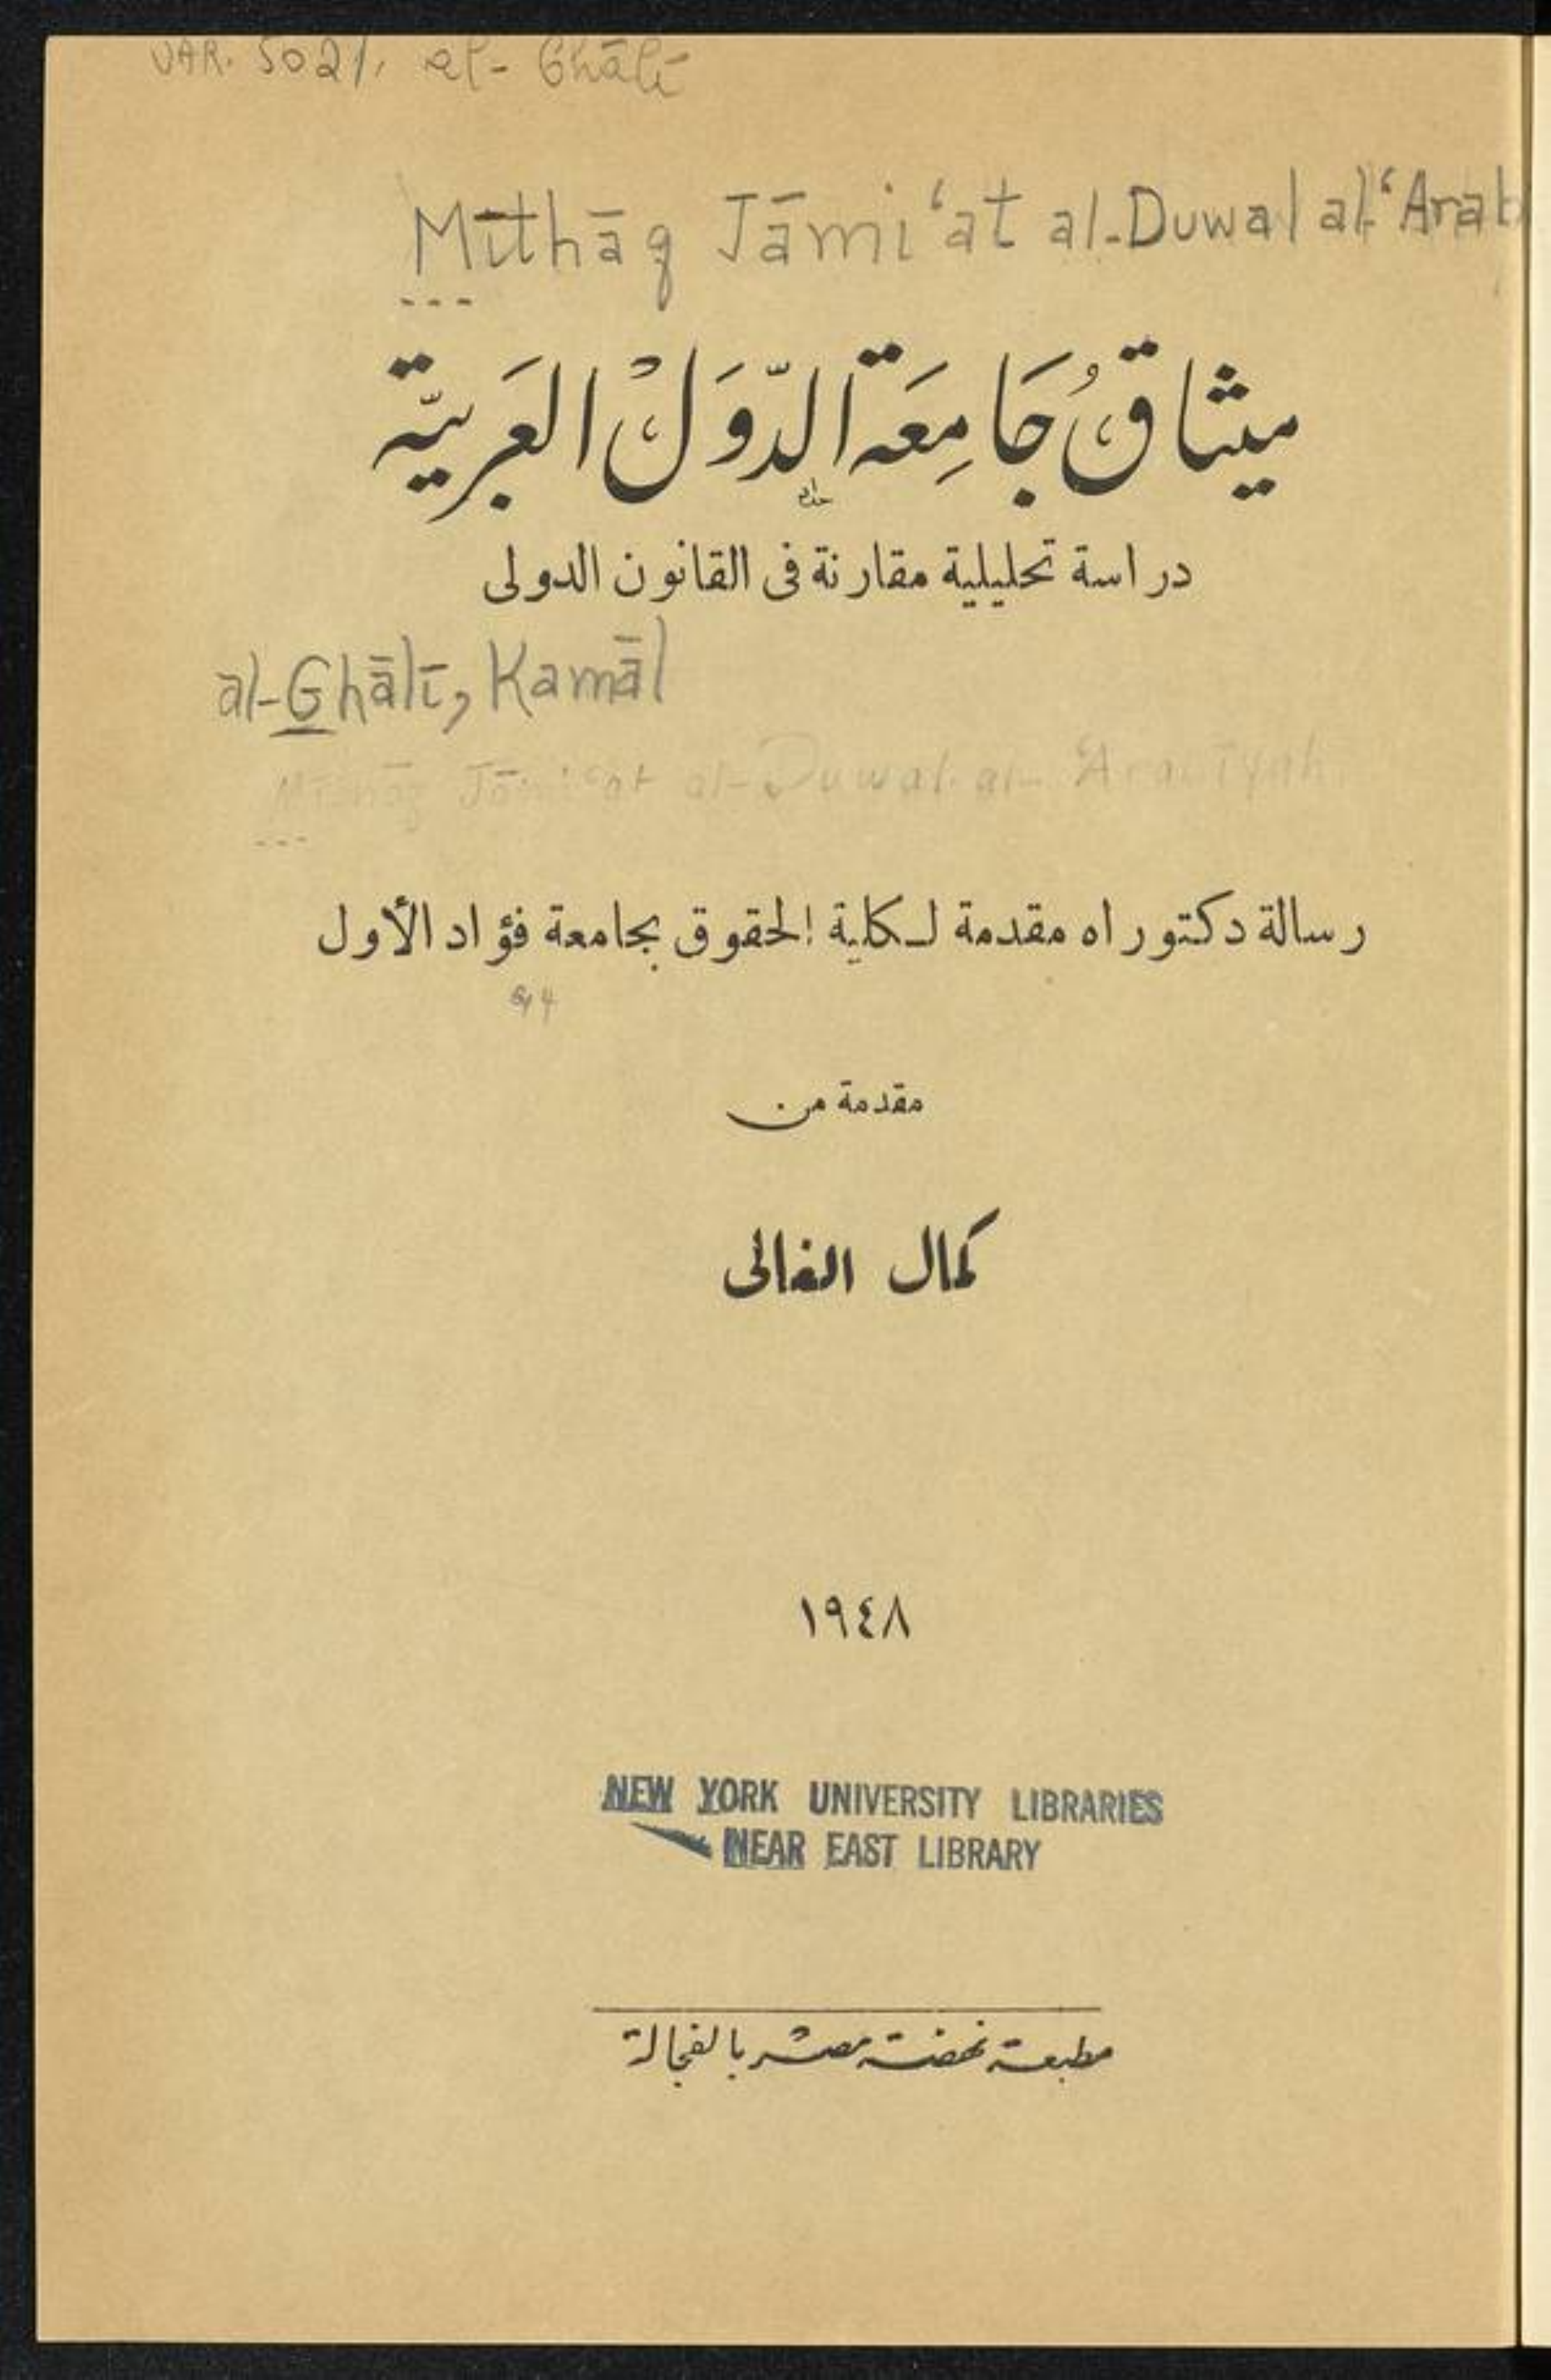 VAR. 5021, al-Ghālī
Mīthāq Jāmi‘at al-Duwal al-‘Arab
ميثاقُ جَامِعَة الدّوَلْ العَربيّة
دراسة تحليلية مقارنة فى القانون الدولى
al-Ghālī, Kamāl
Jāmi‘at al-Duwal al-‘Arabīyah
رسالة دكتوراه مقدمة لكلية الحقوق بجامعة فؤاد الأول
مقدمة من
كمال الغالى
١٩٤٨
NEW YORK UNIVERSITY LIBRARIES
NEAR EAST LIBRARY
مطبعة نهضة مصر بالفجالة